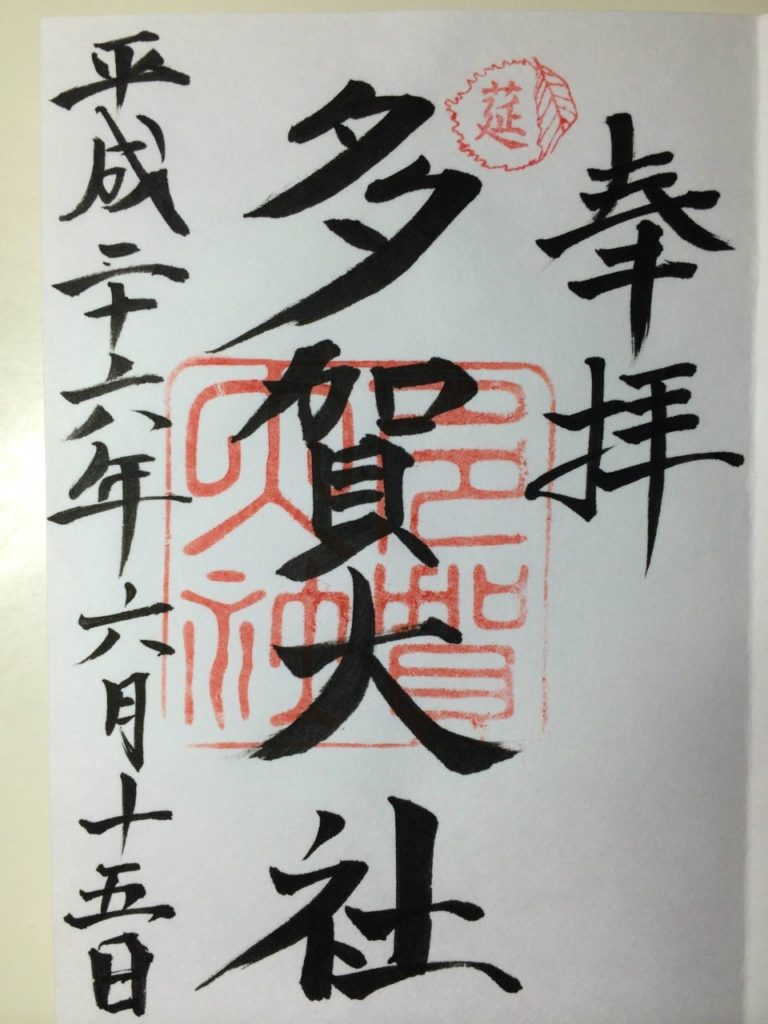 奉拝
莚
多賀大社
多賀大神
平成二十六年六月十五日